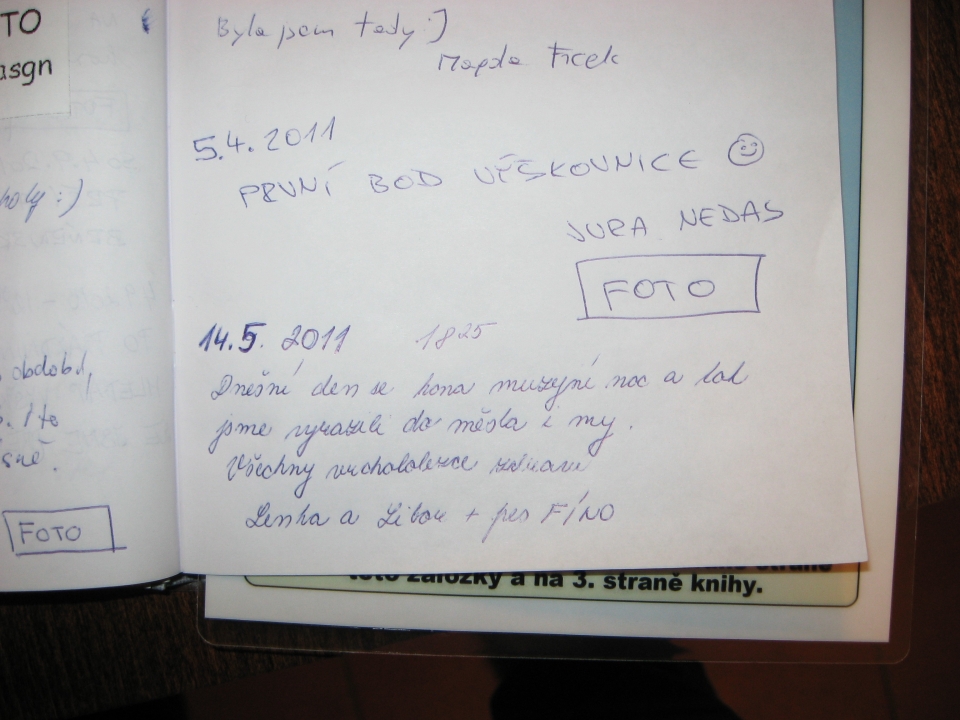 TO
asgn
holy :)
období,
sně.
FOTO
Byla jsem tady :)
Magda Ficek
5.4.2011
PRVNÍ BOD VÝŠKOVNICE ☺
JURA NEDAS
FOTO
14.5. 2011 18 25
Dnešní den se kona muzejní noc a tak
jsme vyrazili do města i my.
Všechny vrchololezce zdraví
Lenka a Libor + pes FÍNO
této záložky a na 3. straně knihy.